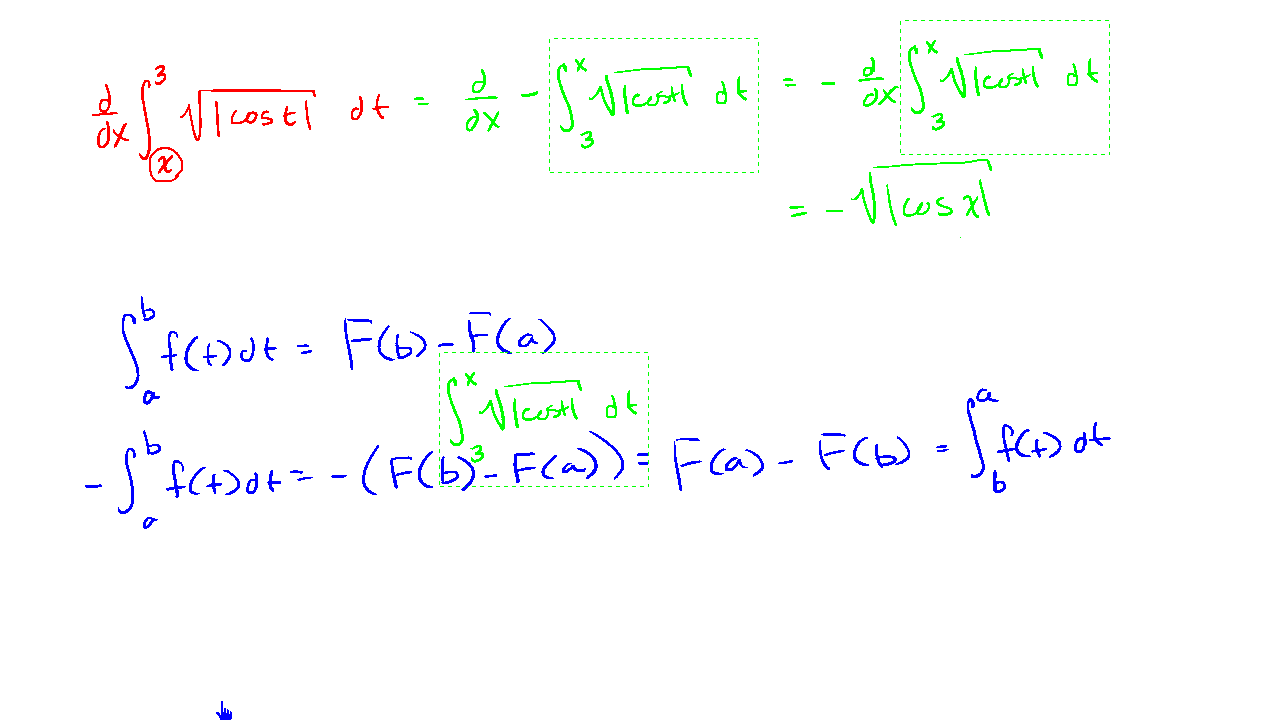 d/dx ∫_x^3 √|cos t| dt = d/dx - ∫_3^x √|cos t| dt = - d/dx ∫_3^x √|cos t| dt
= - √|cos x|
∫_a^b f(t) dt = F(b) - F(a)
∫_3^x √|cos t| dt
- ∫_a^b f(t) dt = - (F(b) - F(a)) = F(a) - F(b) = ∫_b^a f(t) dt